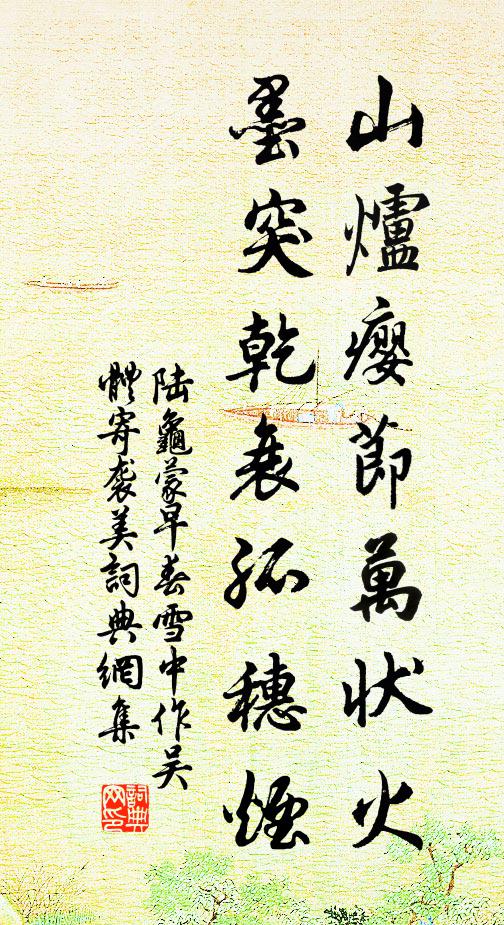 山爐癭節萬状火
墨突乾衰孤穗煙
陸龜蒙早春雪中作吳
體寄袭美詞典網集
詞典
网印